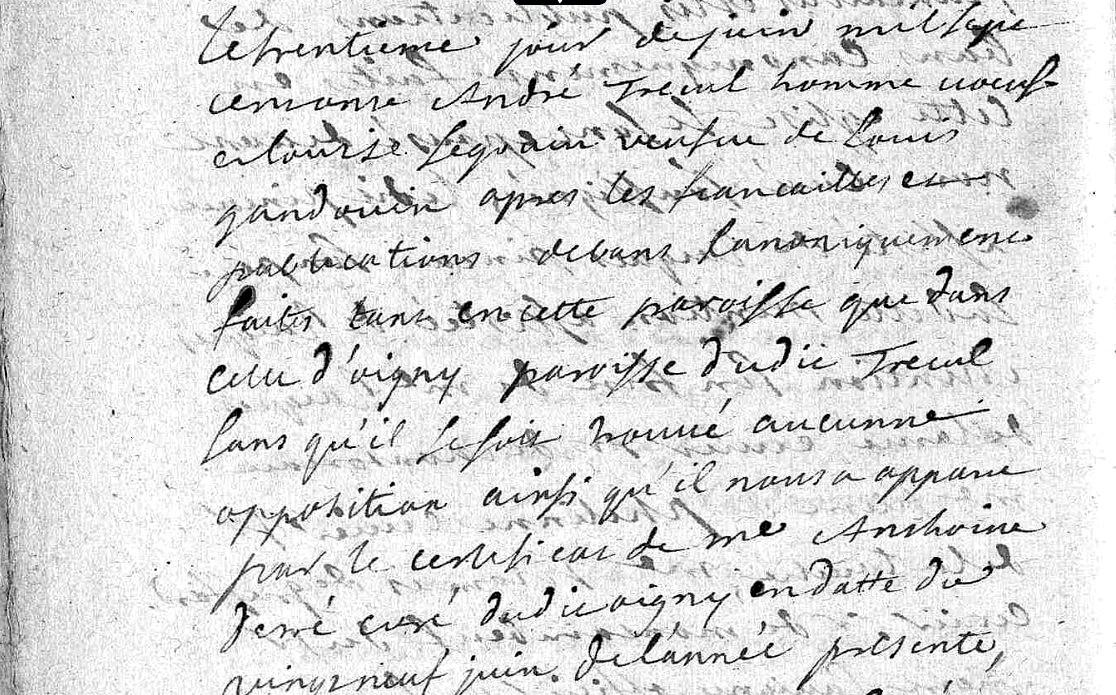 Le trentieme jour de juin mil sept
cent onze André Treul homme voeuf
et Louise Sequin veufve de Louis
gandouin apres les fiancailles et
publications de bans canoniquement
faites tant en cette paroisse que dans
celle d'oigny paroisse dudit Treul
sans qu'il se soit trouvé aucunne
opposition ainsi qu'il nous a apparu
par le certificat de me Anthoine
curé dudit oigny en datte du
vingt neuf juin de l'année presente,